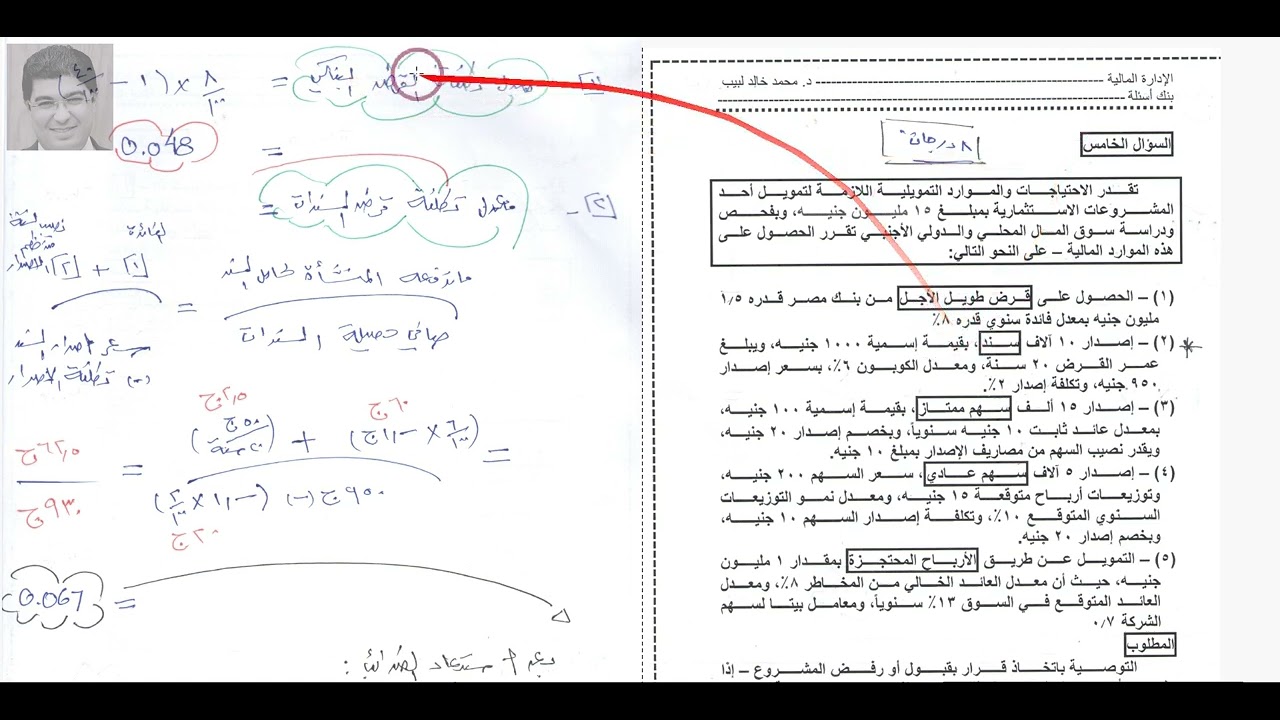 الإدارة المالية ------ د. محمد خالد لبيب
بنك أسئلة
السؤال الخامس
٨ درجات
تقدر الاحتياجات والموارد التمويلية اللازمة لتمويل أحد
المشروعات الاستثمارية بمبلغ ١٥ مليون جنيه، وبفحص
ودراسة سوق المال المحلي والدولي الأجنبي تقرر الحصول على
هذه الموارد المالية – على النحو التالي:
(١) – الحصول على قرض طويل الأجل من بنك مصر قدره ١٫٥
مليون جنيه بمعدل فائدة سنوي قدره ٨٪
(٢) – إصدار ١٠ آلاف سند، بقيمة إسمية ١٠٠٠ جنيه، ويبلغ
عمر القرض ٢٠ سنة، ومعدل الكوبون ٦٪، بسعر إصدار
٩٥٠ جنيه، وتكلفة إصدار ٢٪.
(٣) – إصدار ١٥ ألف سهم ممتاز، بقيمة إسمية ١٠٠ جنيه،
بمعدل عائد ثابت ١٠ جنيه سنوياً، وبخصم إصدار ٢٠ جنيه،
ويقدر نصيب السهم من مصاريف الإصدار بمبلغ ١٠ جنيه.
(٤) – إصدار ٥ آلاف سهم عادي، سعر السهم ٢٠٠ جنيه،
وتوزيعات أرباح متوقعة ١٥ جنيه، ومعدل نمو التوزيعات
السنوي المتوقع ١٠٪، وتكلفة إصدار السهم ١٠ جنيه،
وبخصم إصدار ٢٠ جنيه.
(٥) – التمويل عن طريق الأرباح المحتجزة بمقدار ١ مليون
جنيه، حيث أن معدل العائد الخالي من المخاطر ٨٪، ومعدل
العائد المتوقع في السوق ١٣٪ سنوياً، ومعامل بيتا لسهم
الشركة ٠٫٧
المطلوب
التوصية باتخاذ قرار بقبول أو رفض المشروع – إذا
[١] معدل تكلفة القرض البنكي = ٨/١٠٠ × (١ – ٤٠/١٠٠)
= 0.048
[٢] – معدل تكلفة قرض السندات =
ما تدفعه المنشأة لحامل السند
صافي حصيلة السندات
=
الفائدة
[١] + [٢]
سعر إصدار السند
(–) تكلفة الإصدار
= (٦/١٠٠ × ١٠٠٠ج) + (٥٠ج / ٢٠ سنة)
٦٠ج
٢٫٥ج
٩٥٠ج (–) (١٠٠٠ × ٢/١٠٠)
٢٠ج
= ٦٢٫٥ج
٩٣٠ج
= 0.067